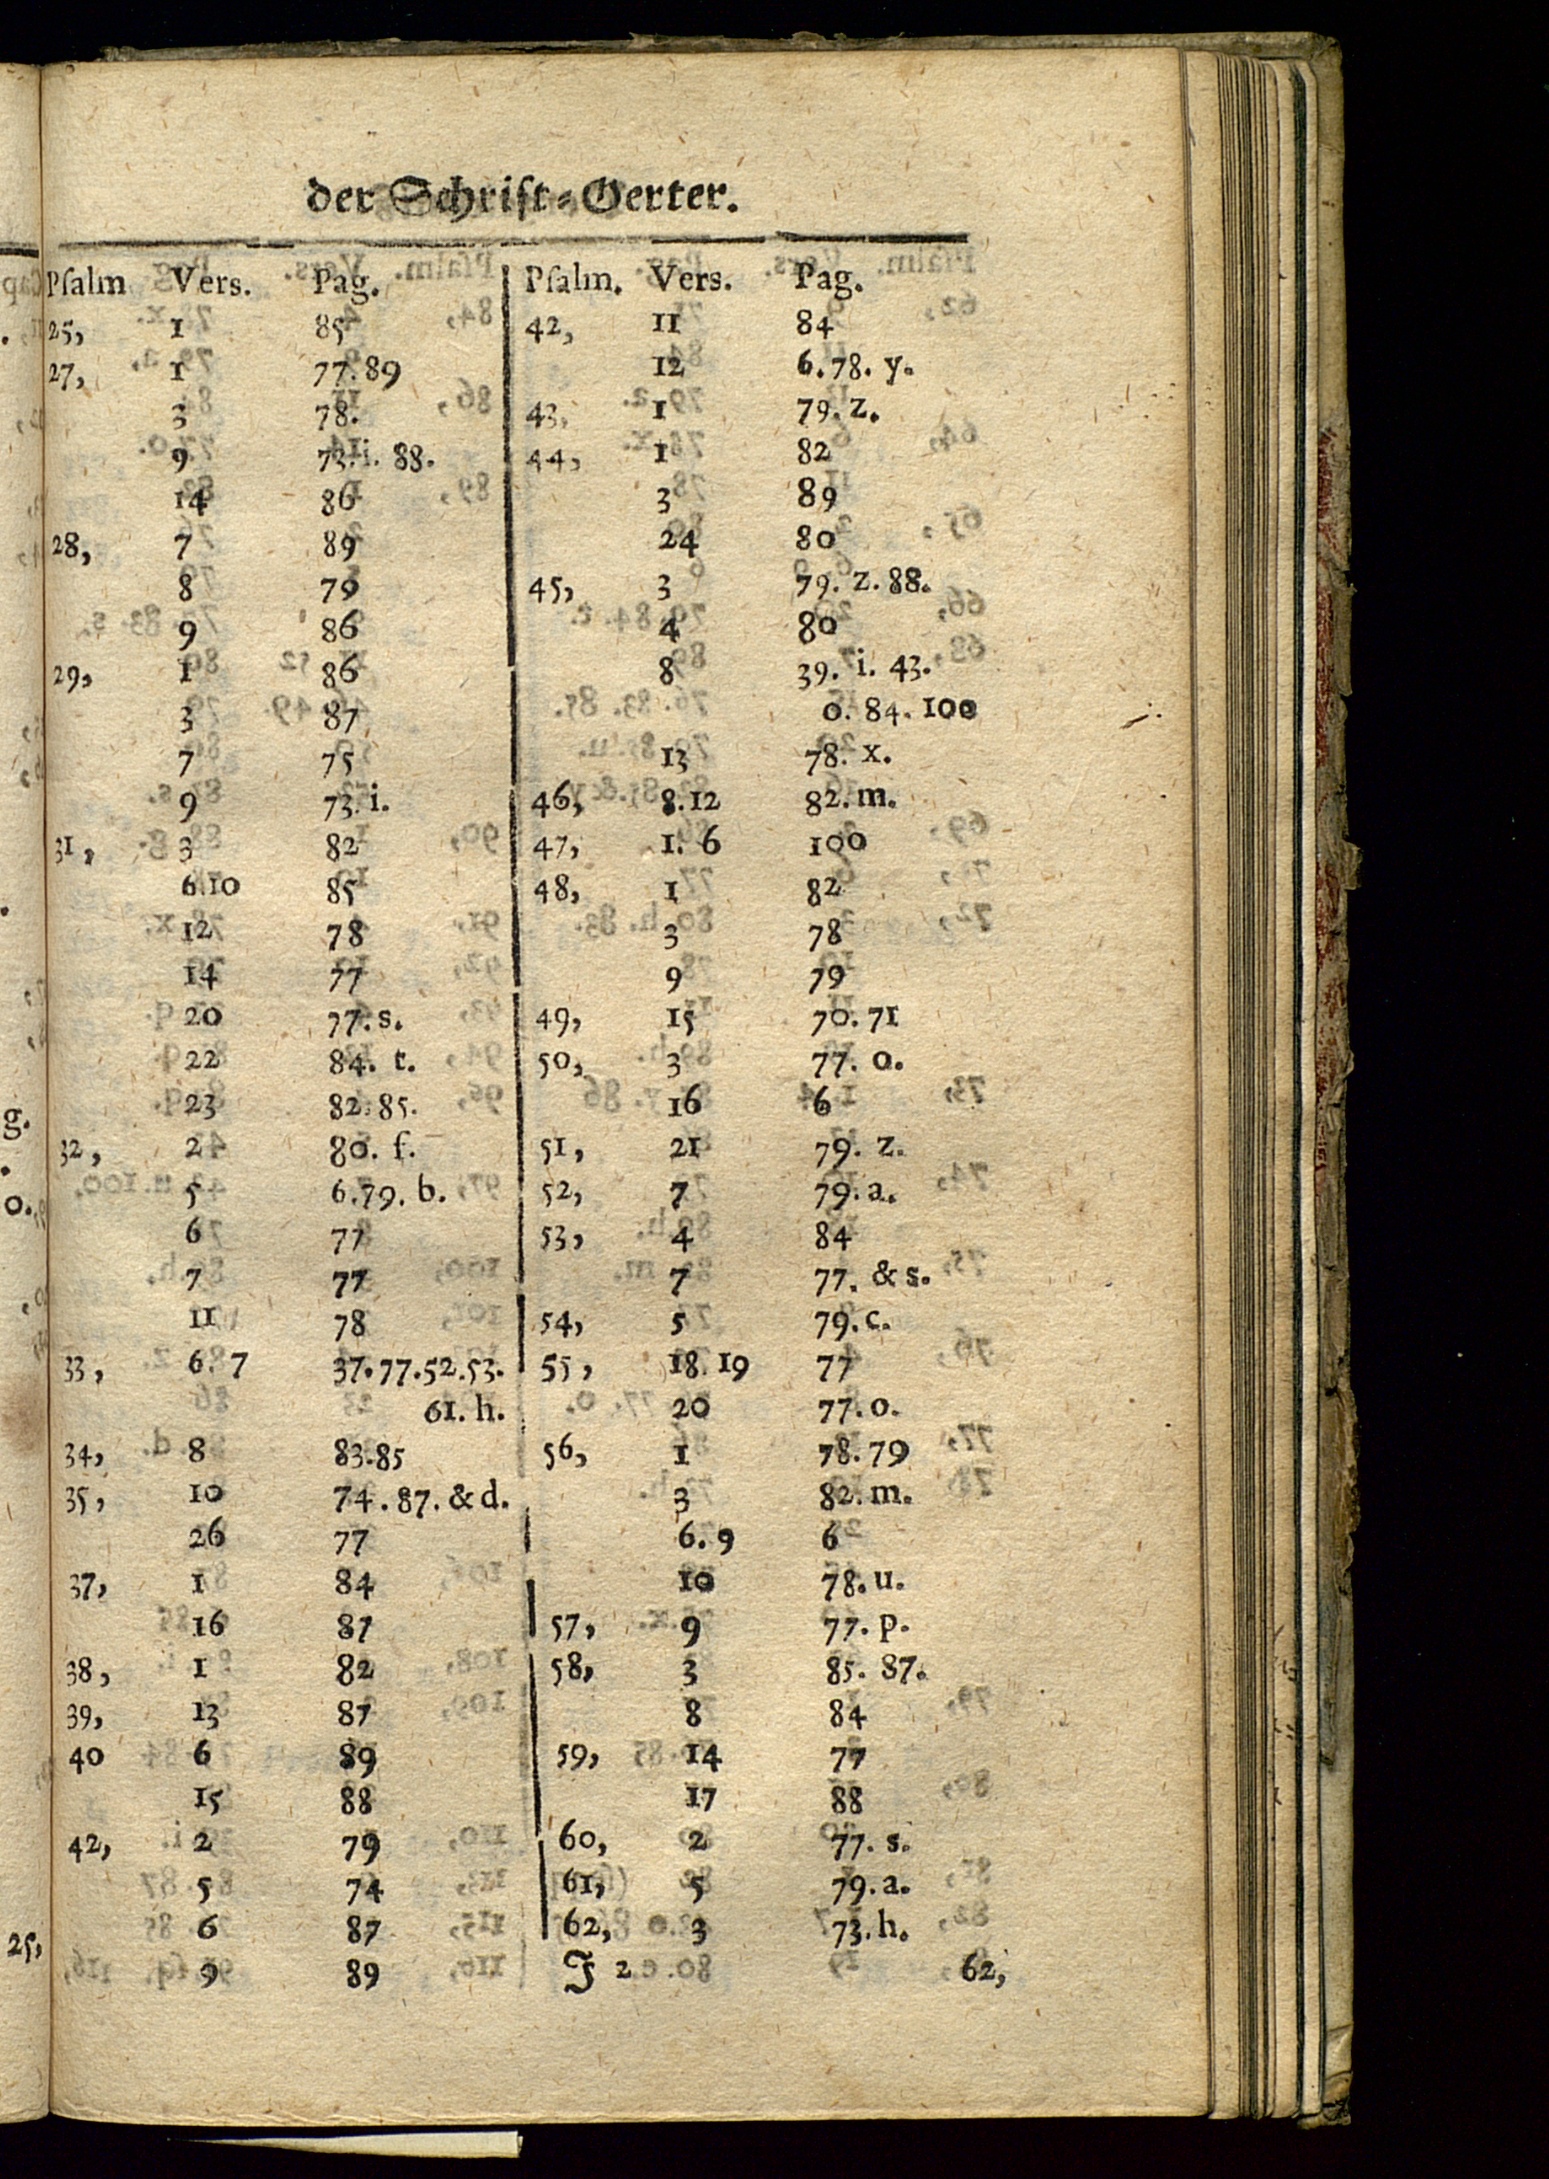 der Schrift-Oerter.
Pſalm Vers. Pag.
25, 1 85
27, 1 77. 89
3 78.
9 73. i. 88.
14 86
28, 7 89
8 79
9 86
29, 1 86
3 87
7 75
9 73. i.
31, 3 82
6.10 85
12 78
14 77
20 77. s.
22 84. t.
23 82. 85.
32, 2 80. f.
5 6.79. b.
6 77
7 77
11 78
33, 6. 7 37.77.52.53.
61. h.
34, 8 83.85
35, 10 74. 87. & d.
26 77
37, 1 84
16 87
38, 1 82
39, 13 87
40 6 89
15 88
42, 2 79
5 74
6 87
9 89
Pſalm. Vers. Pag.
42, 11 84
12 6.78. y.
43, 1 79. z.
44, 1 82
3 89
24 80
45, 3 79. z. 88.
4 80
8 39. i. 43.
o. 84. 100
13 78. x.
46, 8.12 82. m.
47, 1. 6 100
48, 1 82
3 78
9 79
49, 15 70. 71
50, 3 77. o.
16 6
51, 21 79. z.
52, 7 79. a.
53, 4 84
7 77. & s.
54, 5 79. c.
55, 18. 19 77
20 77. o.
56, 1 78. 79
3 82. m.
6. 9 6
10 78. u.
57, 9 77. p.
58, 3 85. 87.
8 84
59, 14 77
17 88
60, 2 77. s.
61, 5 79. a.
62, 3 73. h.
F 2 62,